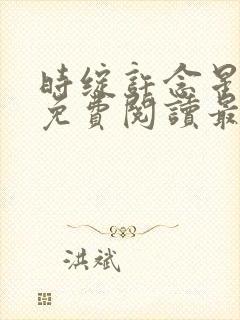 时绽許念星
免費閱讀最
洪斌